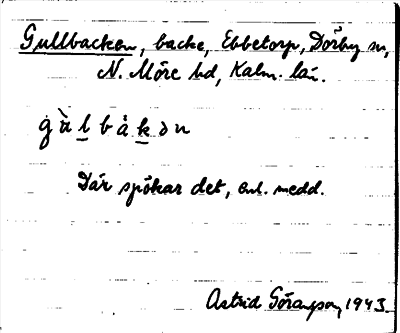 Gullbacken, backe, Ebbetorp, Dörby sn,
N. Möre hd, Kalm. län.
gàlbåkən
Där spökar det, enl. medd.
Astrid Göransson, 1943.